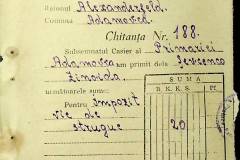 Raionul Alexanderfeld.
Comuna Adamovca.
Chitanța Nr. 188.
Subsemnatul Casier al Primăriei
Adamovca am primit dela Sevcenco
Zinovia
următoarele sume:
SUMA
R.K.K.S. Pf.
Pentru impozit
vie de
strugue 20